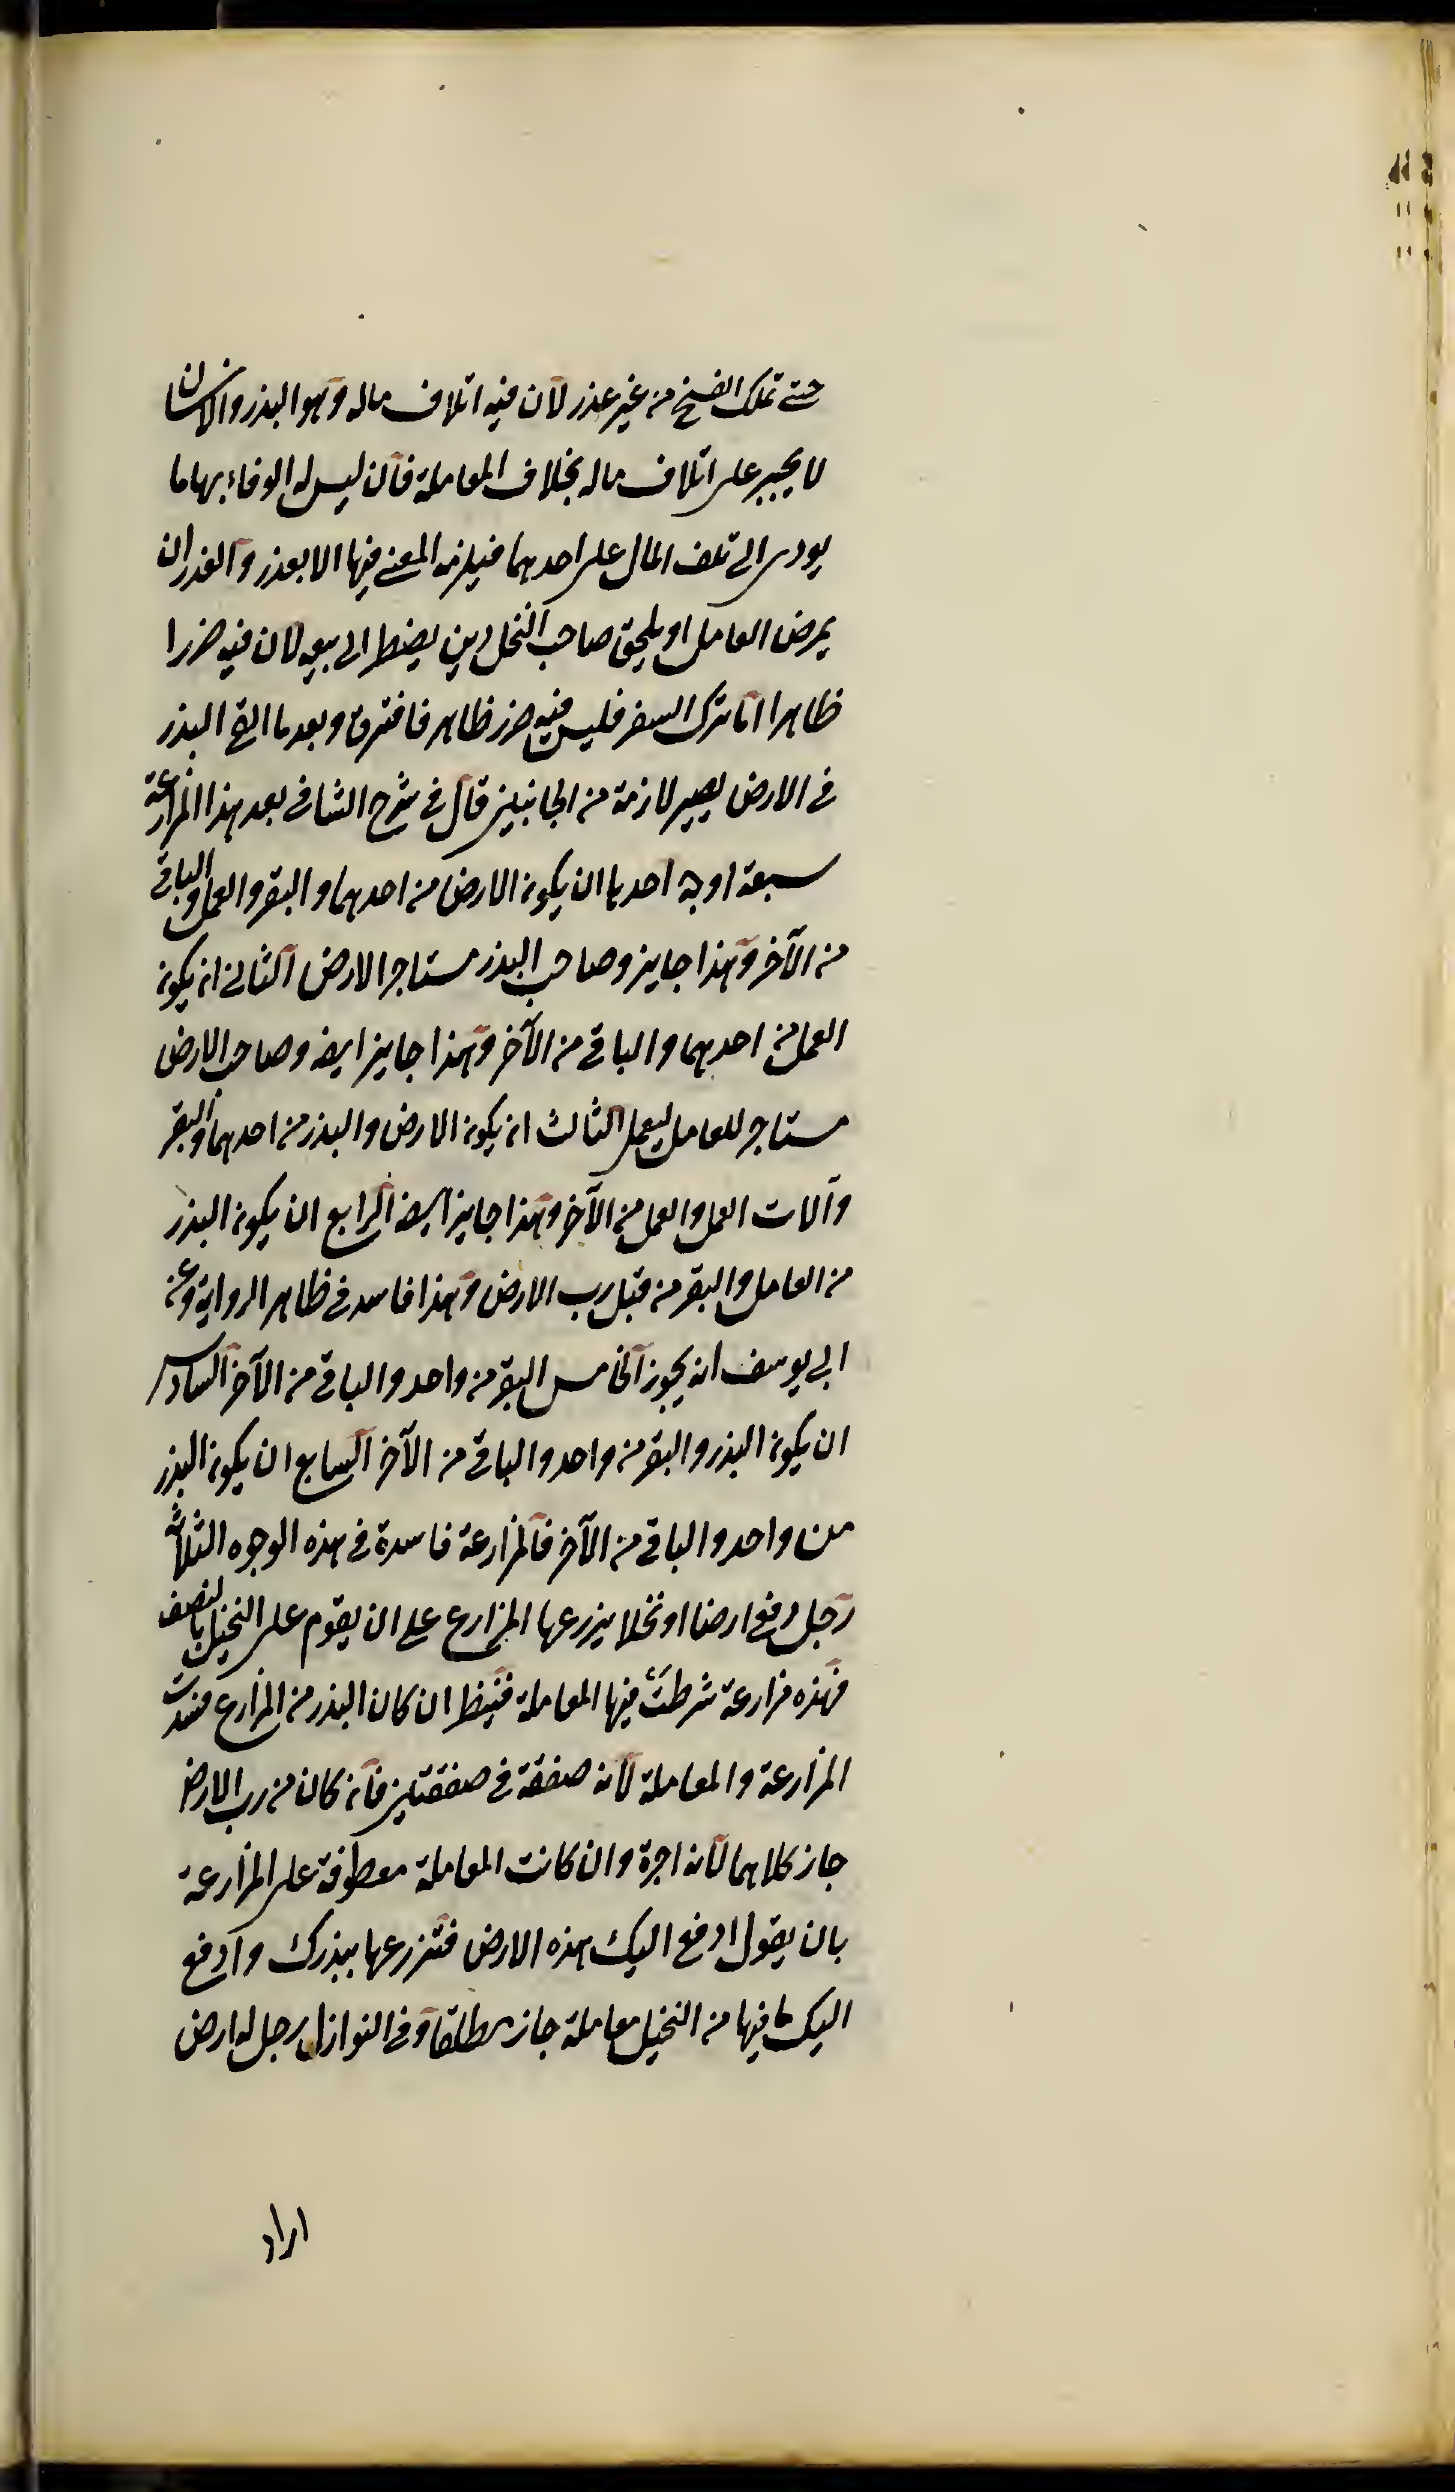 حتى تملك الفسخ من غير عذر لان فيه اتلاف ماله وهو البذر والانسان
لا يجبر على اتلاف ماله بخلاف المعاملة فان ليس له الوفاء بها ما
يودى الى تلف المال على احدهما فيلزمه المعنى فيها الا بعذر والعذر ان
يمرض العامل او يلحق صاحب النخل دين يضطر الى بيعه لان فيه ضررا
ظاهرا اما ترك السفر فليس فيه ضرر ظاهر فافترق وبعد ما القى البذر
فى الارض يصير لازمة من الجانبين قال فى شرح الشافى بعد هذا المزارعة
سبعة اوجه احدها ان يكون الارض من احدهما والبقر والعمل والباقى
من الآخر وهذا جايز وصاحب البذر مستاجر الارض الثانى ان يكون
العمل من احدهما والباقى من الآخر وهذا جايز ايضه وصاحب الارض
مستاجر للعامل ليعمل الثالث ان يكون الارض والبذر من احدهما والبقر
وآلات العمل والعمل من الآخر وهذا جايز ايضه الرابع ان يكون البذر
من العامل والبقر من قبل رب الارض وهذا فاسد فى ظاهر الرواية وعن
ابى يوسف انه يجوز الخامس البقر من واحد والباقى من الآخر السادس
ان يكون البذر والبقر من واحد والباقى من الآخر السابع ان يكون البذر
من واحد والباقى من الآخر فالمزارعة فاسدة فى هذه الوجوه الثلاثة
رجل دفع ارضا او نخلا يزرعها المزارع على ان يقوم على النخيل بالنصف
فهذه مزارعة شرطت فيها المعاملة فينظر ان كان البذر من المزارع فسدت
المزارعة والمعاملة لانه صفقة فى صفقتين فان كان من رب الارض
جاز كلاهما لانه اجرة وان كانت المعاملة معطوفة على المزارعة
بان يقول ادفع اليك هذه الارض فتزرعها ببذرك وادفع
اليك ما فيها من النخيل معاملة جاز مطلقا وفى النوازل رجل له ارض
اراد